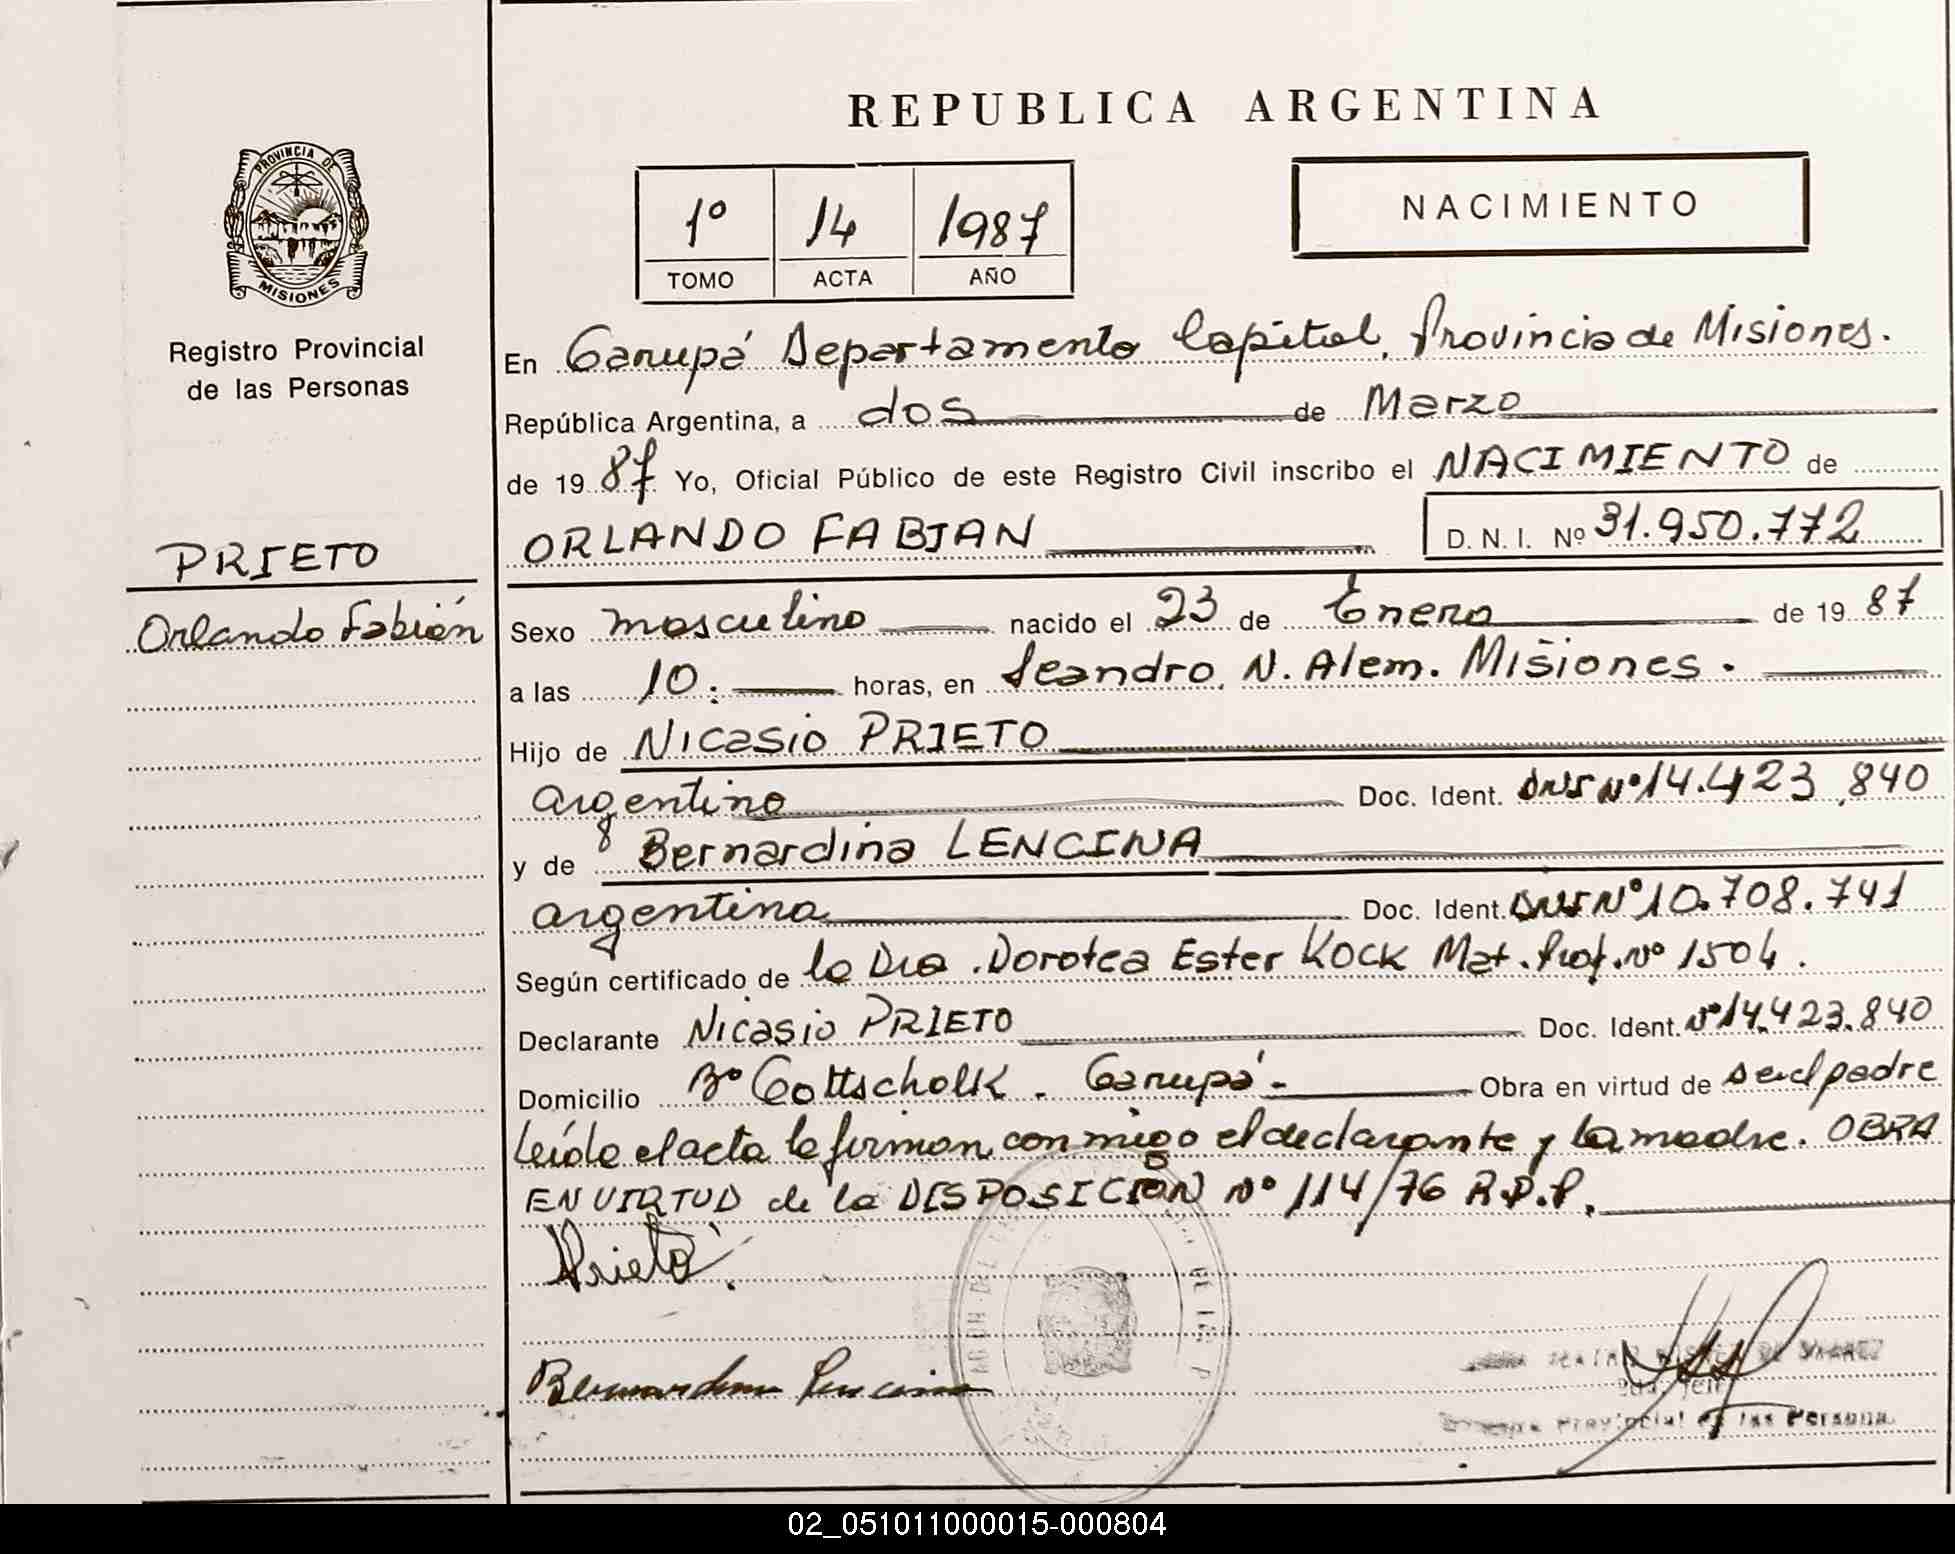 REPUBLICA ARGENTINA
PROVINCIA DE
MISIONES
Registro Provincial
de las Personas
1º 14 1987
TOMO ACTA AÑO
NACIMIENTO
En Garupá Departamento Capital, Provincia de Misiones.
República Argentina, a dos de Marzo
de 1987 Yo, Oficial Público de este Registro Civil inscribo el NACIMIENTO de
PRIETO
Orlando Fabián
ORLANDO FABIAN D. N. I. Nº 31.950.772
Sexo masculino nacido el 23 de Enero de 1987
a las 10. horas, en Leandro N. Alem. Misiones.
Hijo de Nicasio PRIETO
argentino Doc. Ident. DNI Nº 14.423.840
y de Bernardina LENCINA
argentina Doc. Ident. DNI Nº 10.708.741
Según certificado de la Dra. Dorotea Ester KOCK Mat. Prof. Nº 1504.
Declarante Nicasio PRIETO Doc. Ident. Nº 14.423.840
Domicilio Bº Gottschalk. Garupá.- Obra en virtud de ser el padre
Leída el acta la firman conmigo el declarante y la madre. OBRA
EN VIRTUD de la DISPOSICION Nº 114/76 R.P.P.
Prieto
Bernardina Lencina
Provincial de las Personas
02_051011000015-000804